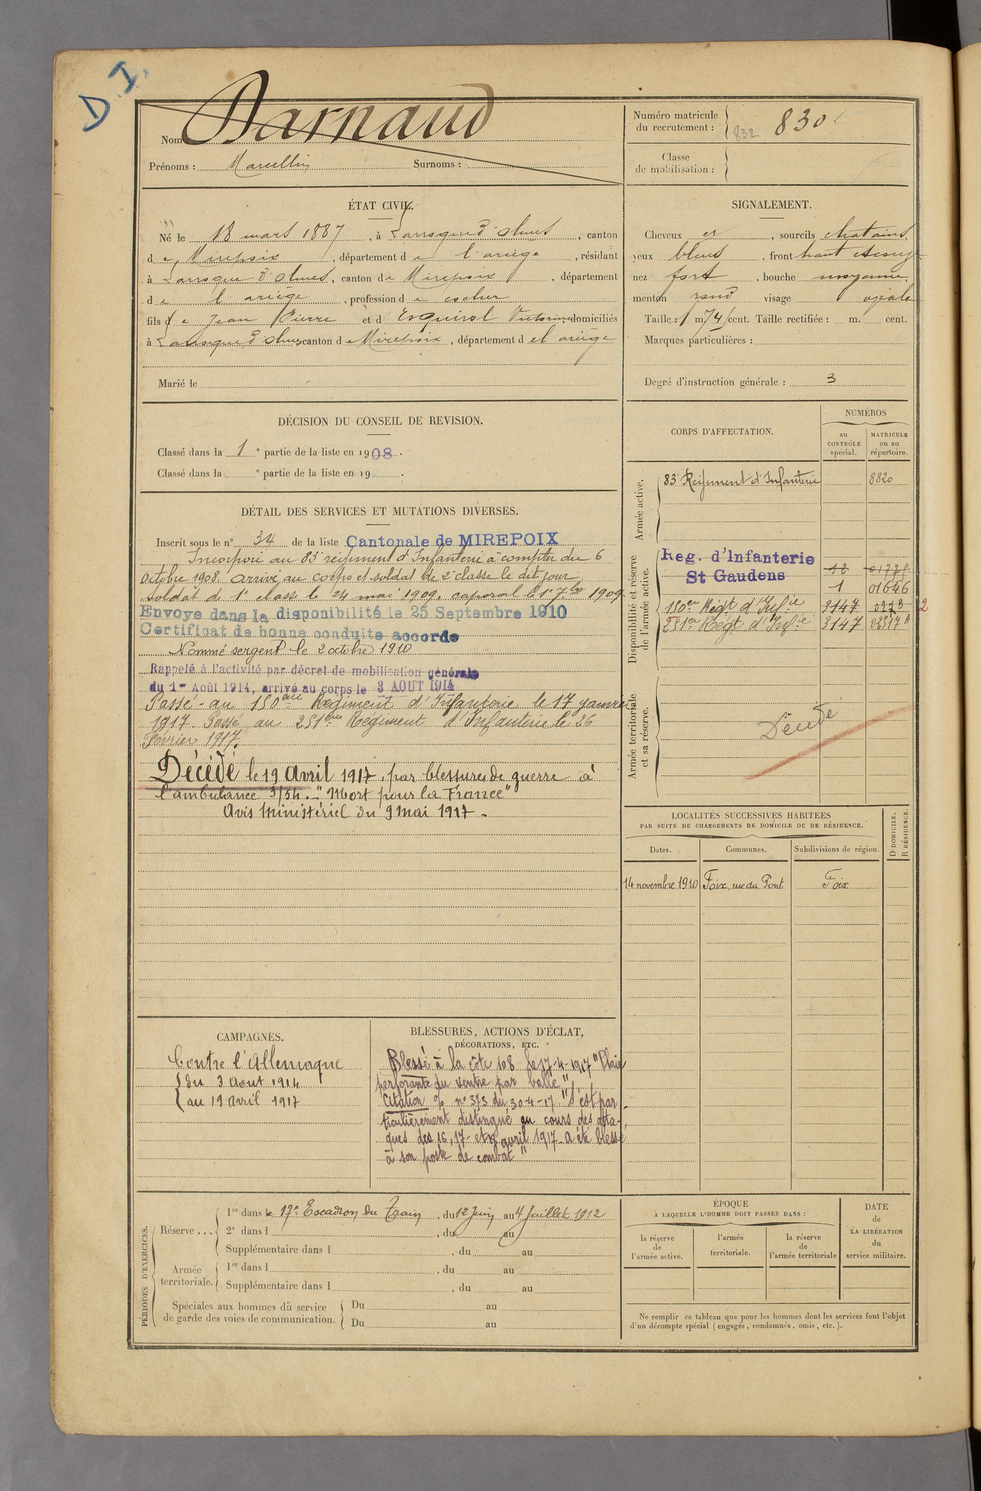 D.I.
Nom Darnaud
Prénoms : Marcellin Surnoms :
Numéro matricule du recrutement : 832 830
Classe de mobilisation :
ÉTAT CIVIL.
Né le 13 mars 1887, à Larroque d'olmes, canton
d e Mirepoix, département d e l'ariège, résidant
à Larroque d'olmes, canton d e Mirepoix, département
d e l'ariège, profession d e cocher
fils d e Jean Pierre et d' Esquirol Victorine domiciliés
à Larroque d'olmes canton d e Mirepoix, département d e l'ariège
Marié le
SIGNALEMENT.
Cheveux et , sourcils chatains,
yeux bleus , front haut
nez fort , bouche moyenne,
menton rond visage ovale
Taille : 1 m. 74 cent. Taille rectifiée : m. cent.
Marques particulières :
Degré d'instruction générale : 3
DÉCISION DU CONSEIL DE REVISION.
Classé dans la 1e partie de la liste en 1908.
Classé dans la e partie de la liste en 19 .
CORPS D'AFFECTATION.
NUMÉROS
au CONTRÔLE spécial.
MATRICULE ou au répertoire.
Armée active.
83e Régiment d'Infanterie 8820
Disponibilité et réserve de l'armée active.
Reg. d'Infanterie
St Gaudens
1 01646
150e Régt d'Inf.ie 3147
251e Régt d'Inf.ie 3147
Armée territoriale et sa réserve.
Décédé
DÉTAIL DES SERVICES ET MUTATIONS DIVERSES.
Inscrit sous le n° 34 de la liste Cantonale de MIREPOIX
Incorporé au 83e régiment d'Infanterie à compter du 6
octobre 1908. arrivé au corps et soldat de 2e classe le dit jour
soldat de 1e classe le 24 mai 1909. caporal le 1er 7.bre 1909.
Envoyé dans la disponibilité le 25 Septembre 1910
Certificat de bonne conduite accordé
Nommé sergent le 2 octobre 1910
Rappelé à l'activité par décret de mobilisation générale
du 1er Août 1914, arrivé au corps le 3 AOUT 1914
Passé au 150ème Régiment d'Infanterie le 17 janvier
1917. Passé au 251ème Régiment d'Infanterie le 26
Février 1917.
Décédé le 19 avril 1917, par blessures de guerre à
l'ambulance 3/54. - "Mort pour la France"
Avis Ministériel du 9 mai 1917 -
LOCALITÉS SUCCESSIVES HABITÉES
PAR SUITE DE CHANGEMENTS DE DOMICILE OU DE RÉSIDENCE.
Dates. Communes. Subdivisions de région. D DOMICILE. R RÉSIDENCE.
14 novembre 1910 Foix, rue du Pont Foix
CAMPAGNES.
Contre l'Allemagne
du 3 Aout 1914
au 19 Avril 1917
BLESSURES, ACTIONS D'ÉCLAT,
DÉCORATIONS, ETC.
Blessé à la côte 108 le 17-4-1917 "Plaie
perforante du ventre par balle".
Citation % n° 373 du 30-4-17 "S'est par-
ticulièrement distingué au cours des atta-
ques des 16, 17- et avril 1917. a été blessé
à son poste de combat"
PÉRIODES D'EXERCICES.
Réserve ... 1re dans le 17e Escadron du Train , du 12 Juin au 4 Juillet 1912
2e dans l , du au
Supplémentaire dans l , du au
Armée territoriale. 1re dans l , du au
Supplémentaire dans l , du au
Spéciales aux hommes du service
de garde des voies de communication. Du au
Du au
ÉPOQUE
À LAQUELLE L'HOMME DOIT PASSER DANS :
la réserve de l'armée active.
l'armée territoriale.
la réserve de l'armée territoriale
DATE
de
LA LIBÉRATION
du
service militaire.
Ne remplir ce tableau que pour les hommes dont les services font l'objet
d'un décompte spécial (engagés, condamnés, omis, etc.).